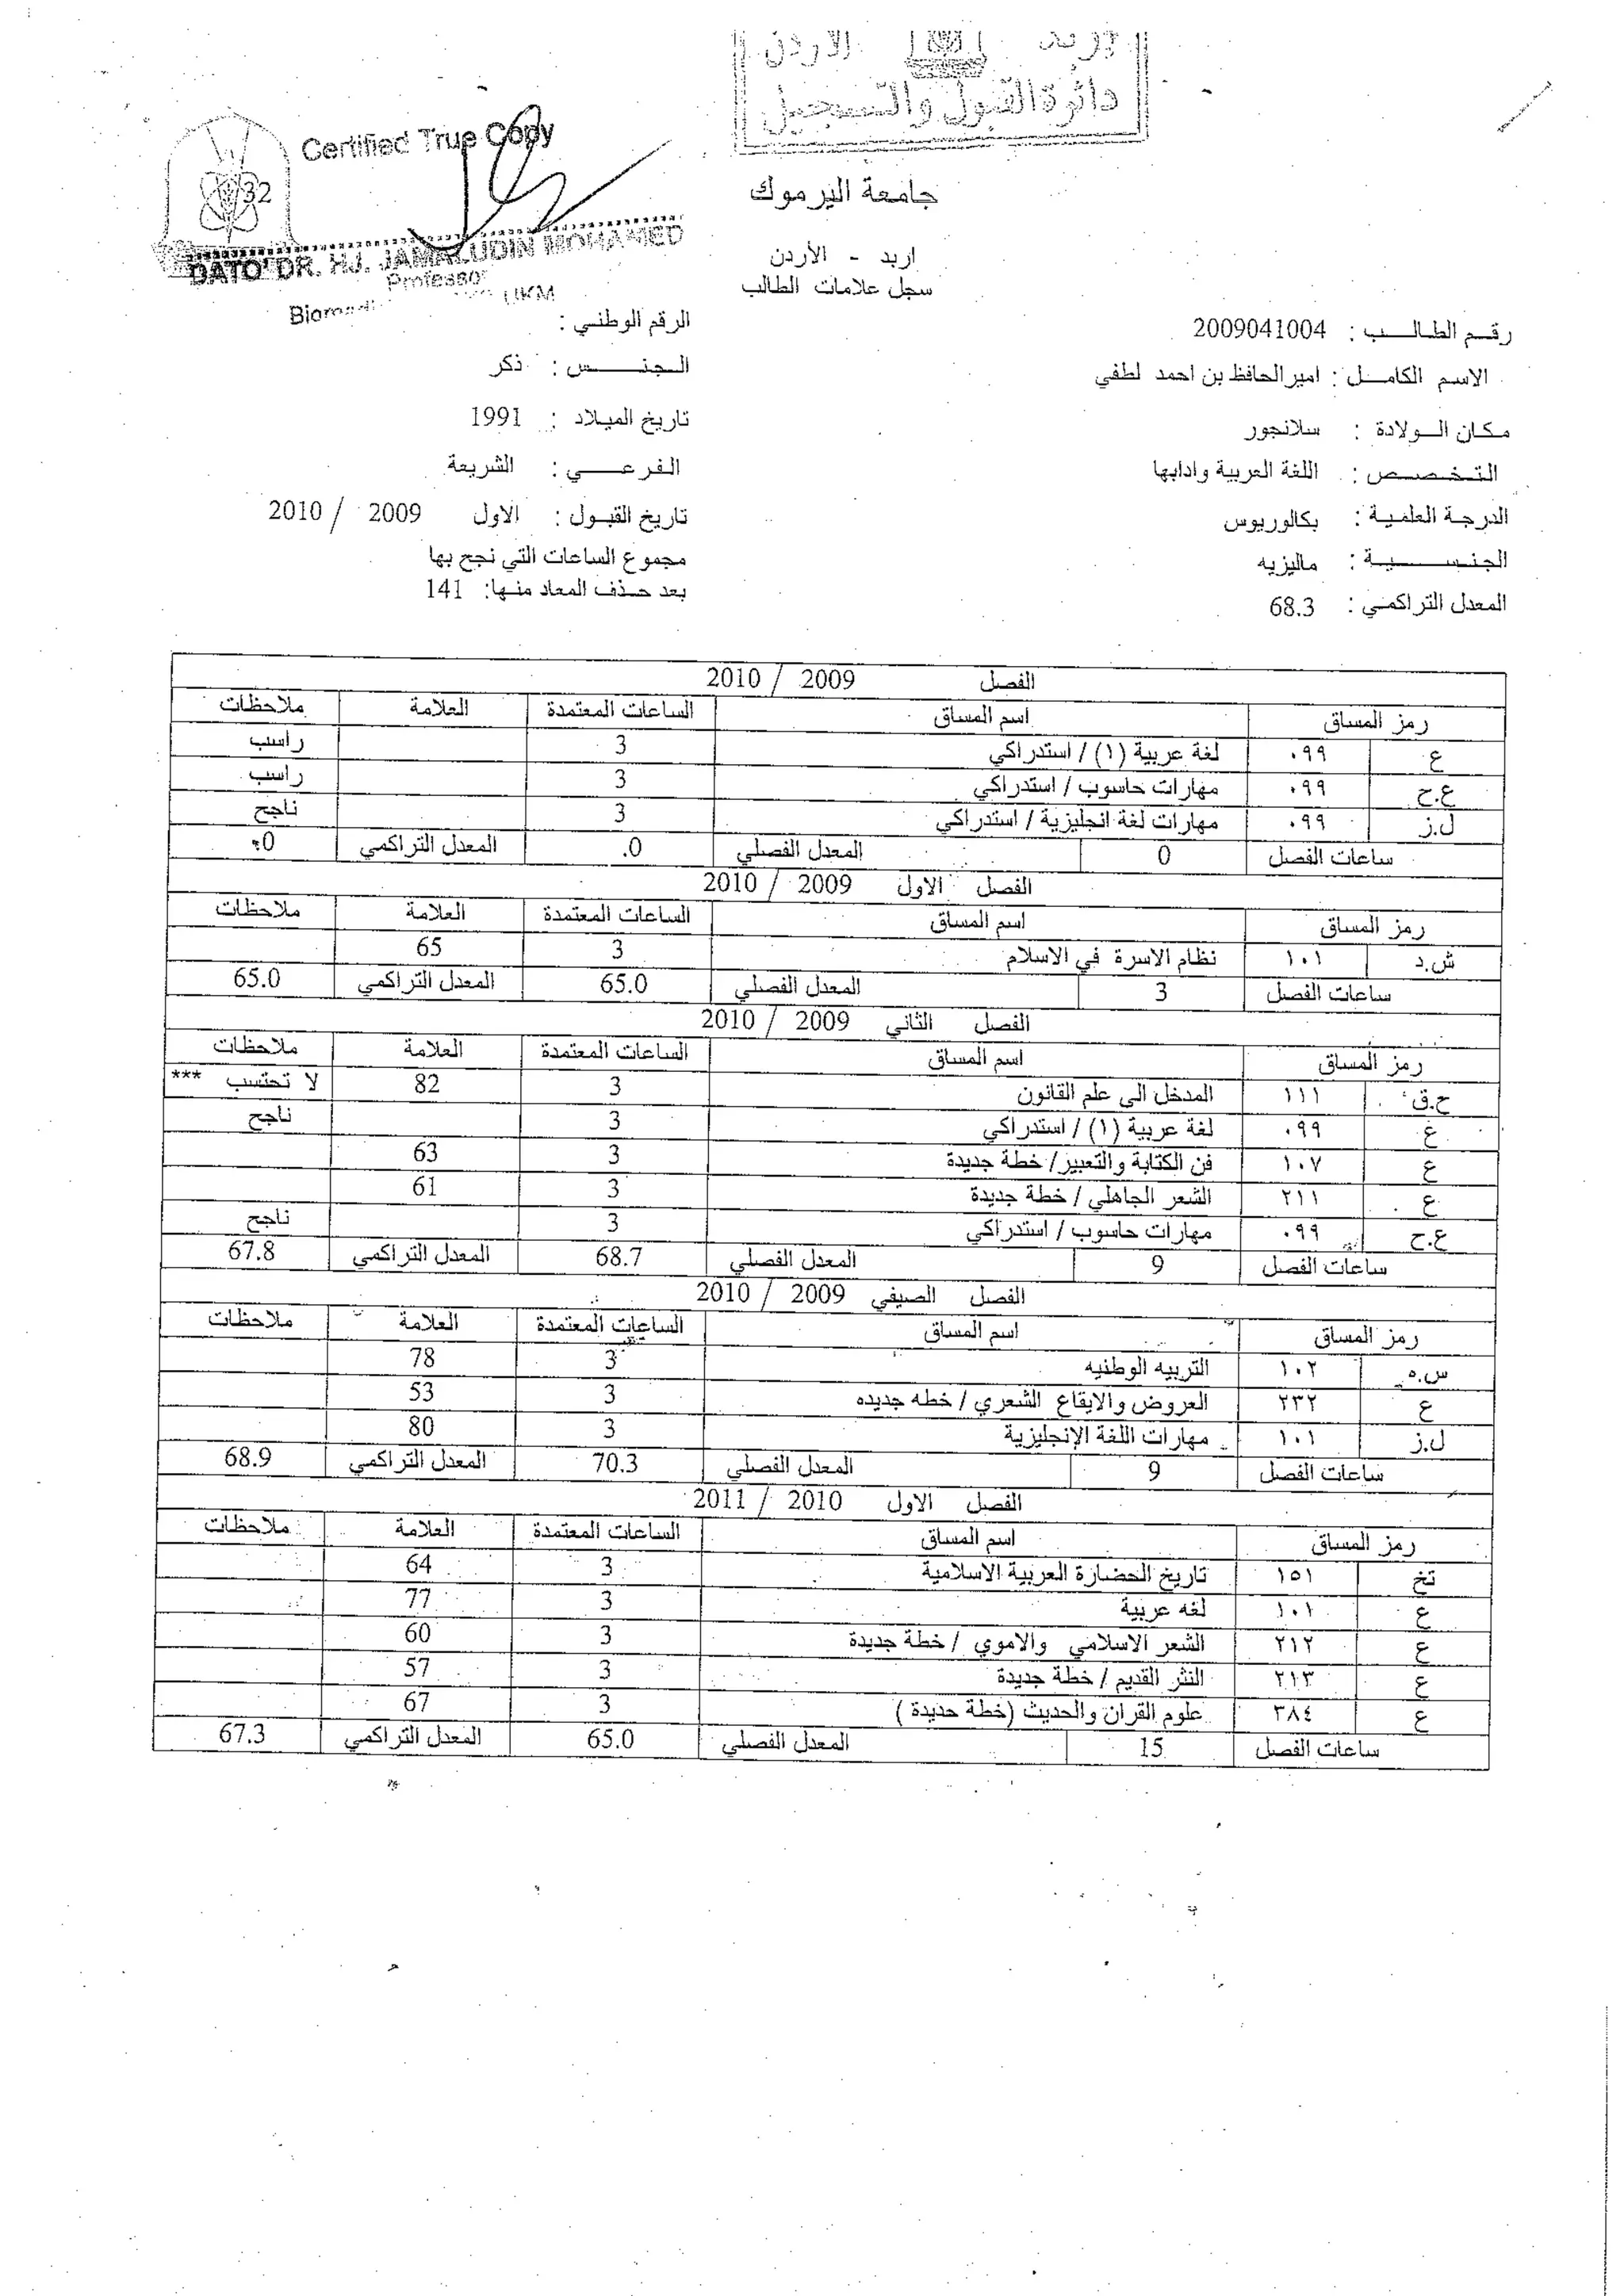 اربد الاردن
دائرة القبول والتسجيل
Certified True Copy
32
DATO' DR. HJ. JAMALUDIN MOHAMED
Professor
UKM
جامعة اليرموك
اربد - الأردن
سجل علامات الطالب
رقم الطالب : 2009041004 الرقم الوطني :
الاسم الكامل : اميرالحافظ بن احمد لطفي الجنس : ذكر
مكان الولادة : سلانجور تاريخ الميلاد : 1991
التخصص : اللغة العربية وادابها الفرعي : الشريعة
الدرجة العلمية : بكالوريوس تاريخ القبول : الاول 2009 / 2010
الجنسية : ماليزيه مجموع الساعات التي نجح بها
المعدل التراكمي : 68.3 بعد حذف المعاد منها: 141
الفصل 2009 / 2010
رمز المساق اسم المساق الساعات المعتمدة العلامة ملاحظات
ع ٠٩٩ لغة عربية (١) / استدراكي 3 راسب
ع.ح ٠٩٩ مهارات حاسوب / استدراكي 3 راسب
ل.ز ٠٩٩ مهارات لغة انجليزية / استدراكي 3 ناجح
ساعات الفصل 0 المعدل الفصلي .0 المعدل التراكمي .0
الفصل الاول 2009 / 2010
رمز المساق اسم المساق الساعات المعتمدة العلامة ملاحظات
ش.د ١٠١ نظام الاسرة في الاسلام 3 65
ساعات الفصل 3 المعدل الفصلي 65.0 المعدل التراكمي 65.0
الفصل الثاني 2009 / 2010
رمز المساق اسم المساق الساعات المعتمدة العلامة ملاحظات
ح.ق ١١١ المدخل الى علم القانون 3 82 لا تحتسب ***
ع ٠٩٩ لغة عربية (١) / استدراكي 3 ناجح
ع ١٠٧ فن الكتابة والتعبير/ خطة جديدة 3 63
ع ٢١١ الشعر الجاهلي / خطة جديدة 3 61
ع.ح ٠٩٩ مهارات حاسوب / استدراكي 3 ناجح
ساعات الفصل 9 المعدل الفصلي 68.7 المعدل التراكمي 67.8
الفصل الصيفي 2009 / 2010
رمز المساق اسم المساق الساعات المعتمدة العلامة ملاحظات
س.ه ١٠٢ التربيه الوطنيه 3 78
ع ٢٣٢ العروض والايقاع الشعري / خطه جديده 3 53
ل.ز ١٠١ مهارات اللغة الإنجليزية 3 80
ساعات الفصل 9 المعدل الفصلي 70.3 المعدل التراكمي 68.9
الفصل الاول 2010 / 2011
رمز المساق اسم المساق الساعات المعتمدة العلامة ملاحظات
تخ ١٥١ تاريخ الحضارة العربية الاسلامية 3 64
ع ١٠١ لغه عربية 3 77
ع ٢١٢ الشعر الاسلامي والاموي / خطة جديدة 3 60
ع ٢١٣ النثر القديم / خطة جديدة 3 57
ع ٣٨٤ علوم القران والحديث (خطة جديدة ) 3 67
ساعات الفصل 15 المعدل الفصلي 65.0 المعدل التراكمي 67.3